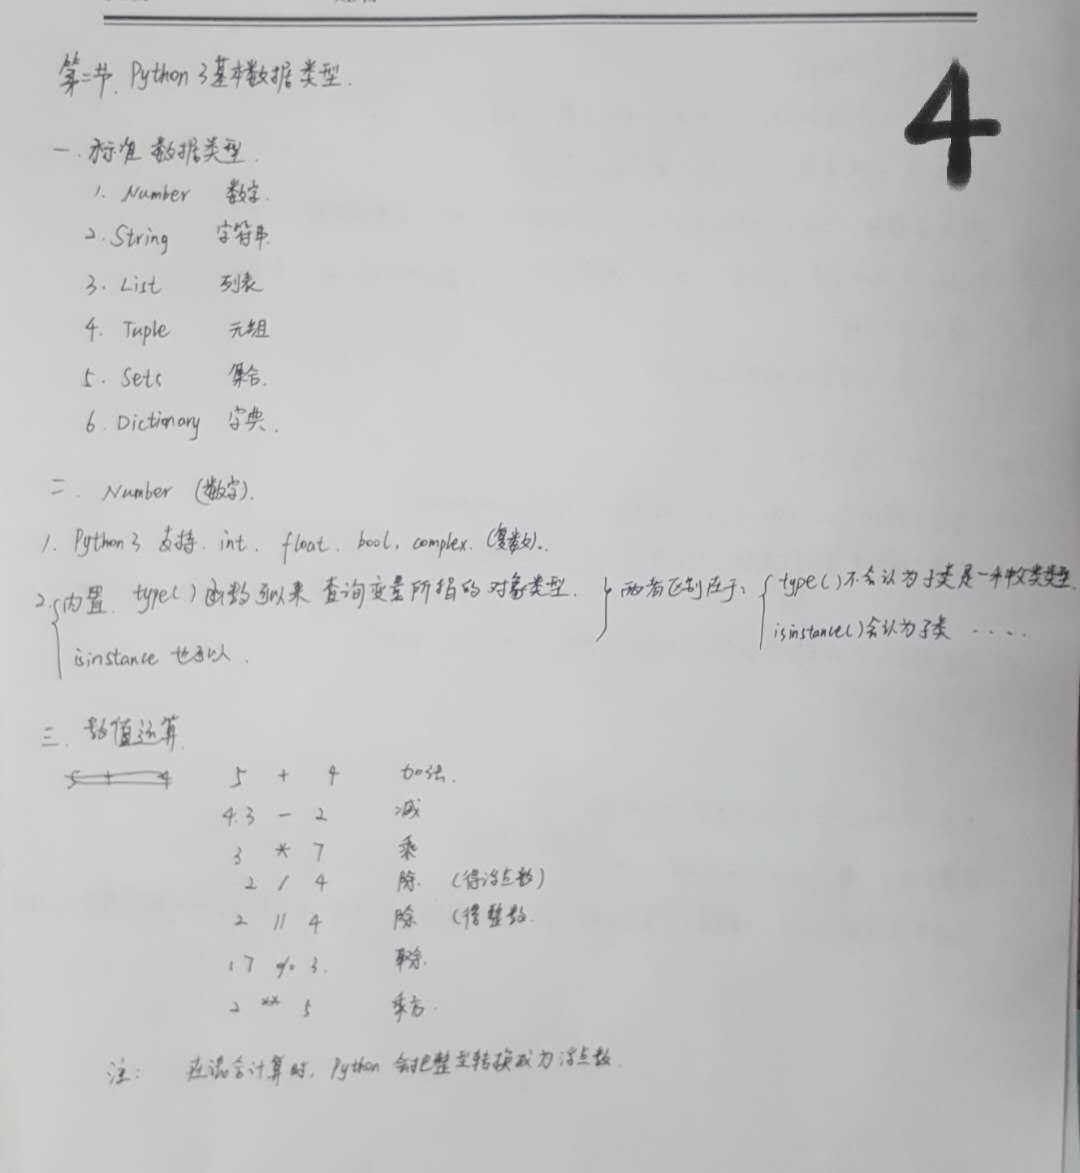 4
第二节. Python 3基本数据类型.
一. 标准数据类型.
1. Number 数字.
2. String 字符串.
3. List 列表
4. Tuple 元组
5. Sets 集合.
6. Dictionary 字典.
二. Number (数字).
1. Python 3 支持. int. float. bool, complex. (复数).
2. 内置. type()函数可以来查询变量所指的对象类型.
isinstance 也可以.
两者区别在于: type()不会认为子类是一种父类类型.
isinstance()会认为子类 .....
三. 数值运算.
5 + 4 加法.
4.3 - 2 减
3 * 7 乘
2 / 4 除. (得浮点数)
2 // 4 除 (得整数.
17 % 3. 取余.
2 ** 5 乘方.
注: 在混合计算时, Python 会把整型转换成为浮点数.